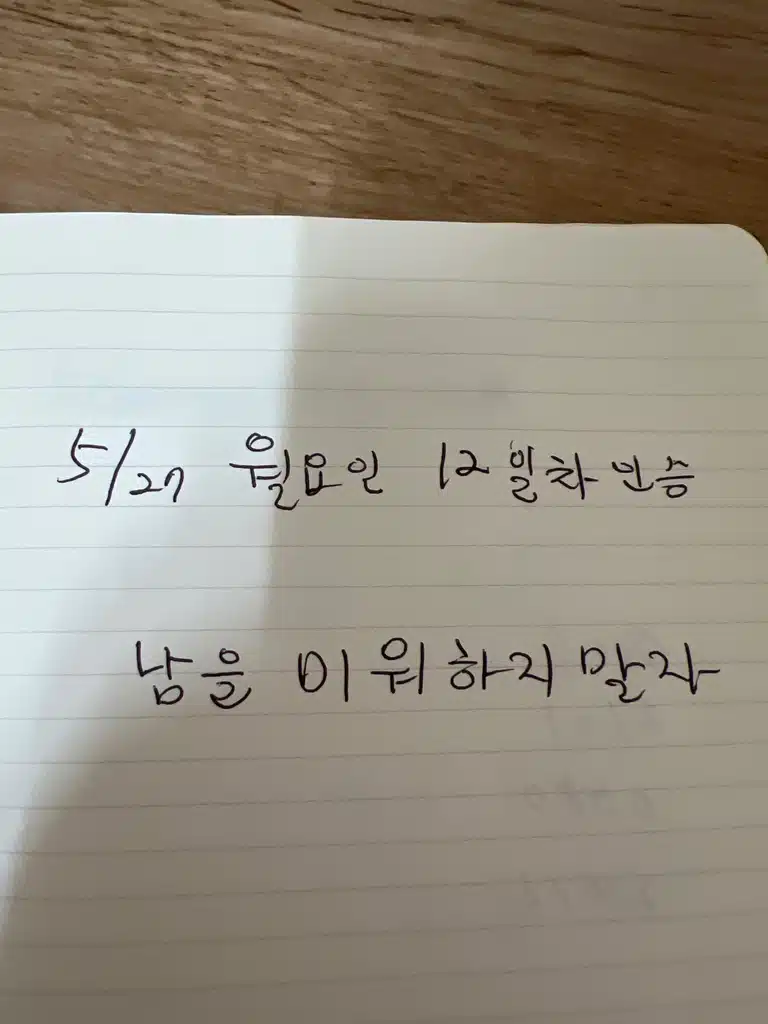 5/27 월요일 12일차 인증
남을 미워하지 말자